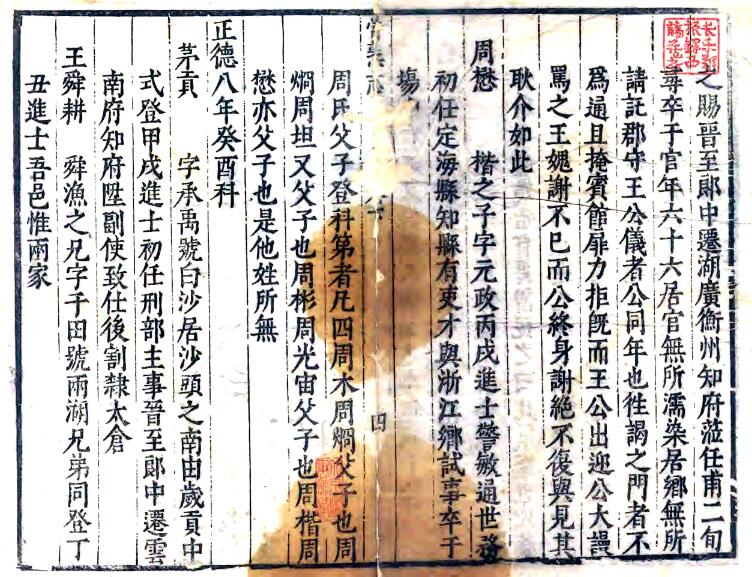 之賜晉至郎中遷湖廣衡州知府蒞任甫二旬
尋卒于官年六十六居官無所濡染居鄉無所
請託郡守王公儀者公同年也徃謁之門者不
爲通且掩賓館扉力拒旣而王公出迎公大謾
罵之王媿謝不巳而公終身謝絕不復與見其
耿介如此
周懋　楷之子字元政丙戌進士警敏通世務
初任定海縣知縣有吏才與浙江鄉試事卒于
塲
四
周氏父子登科第者凡四周木周烱父子也周
烱周坦又父子也周彬周光宙父子也周楷周
懋亦父子也是他姓所無
正德八年癸酉科
茅貢　字承禹號白沙居沙頭之南由歲貢中
式登甲戌進士初任刑部主事晉至郎中遷雲
南府知府陞副使致仕後割隸太倉
王舜耕　舜漁之兄字于田號兩湖兄弟同登丁
丑進士吾邑惟兩家